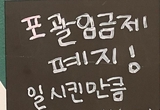 포괄임금제
폐지!
일시킨만큼